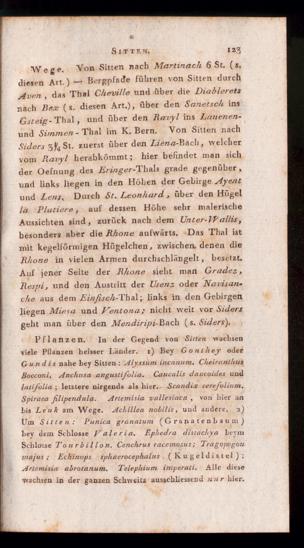 SITTEN. 123
Wege. Von Sitten nach Martinach 6 St. (s.
diesen Art.) — Bergpfade führen von Sitten durch
Aven, das Thal Cheville und über die Diablerets
nach Bex (s. diesen Art.), über den Sanetsch ins
Gsteig-Thal, und über den Ravyl ins Lauenen-
und Simmen-Thal im K. Bern. Von Sitten nach
Siders 3¾ St. zuerst über den Liena-Bach, welcher
vom Ravyl herabkömmt; hier befindet man sich
der Oefnung des Eringer-Thals grade gegenüber,
und links liegen in den Höhen der Gebirge Ayent
und Lens. Durch St. Leonhard, über den Hügel
la Platiere, auf dessen Höhe sehr malerische
Aussichten sind, zurück nach dem Unter-Wallis,
besonders aber die Rhone aufwärts. Das Thal ist
mit kegelförmigen Hügelchen, zwischen denen die
Rhone in vielen Armen durchschlängelt, besetzt.
Auf jener Seite der Rhone sieht man Gradez,
Respi, und den Austritt der Usenz oder Navisan-
che aus dem Einfisch-Thal; links in den Gebirgen
liegen Miesa und Ventona; nicht weit vor Siders
geht man über den Mendiripi-Bach (s. Siders).
Pflanzen. In der Gegend von Sitten wachsen
viele Pflanzen heisser Länder. 1) Bey Gonthey oder
Gundis nahe bey Sitten: Alyssium incanum. Cheiranthus
Bocconi. Anchusa angustifolia. Caucalis daucoides und
latifolia; letztere nirgends als hier. Scandix cerefolium.
Spiraea filipendula. Artemisia vallesiaca, von hier an
bis Leuk am Wege. Achillea nobilis, und andere. 2)
Um Sitten: Punica granatum (Granatenbaum)
bey dem Schlosse Valeria. Ephedra distachya beym
Schlosse Tourbillon. Cenchrus racemosus; Tragopogon
majus; Echinops sphaerocephalus (Kugeldistel);
Artemisia abrotanum. Telephium imperati. Alle diese
wachsen in der ganzen Schweitz ausschliessend nur hier.